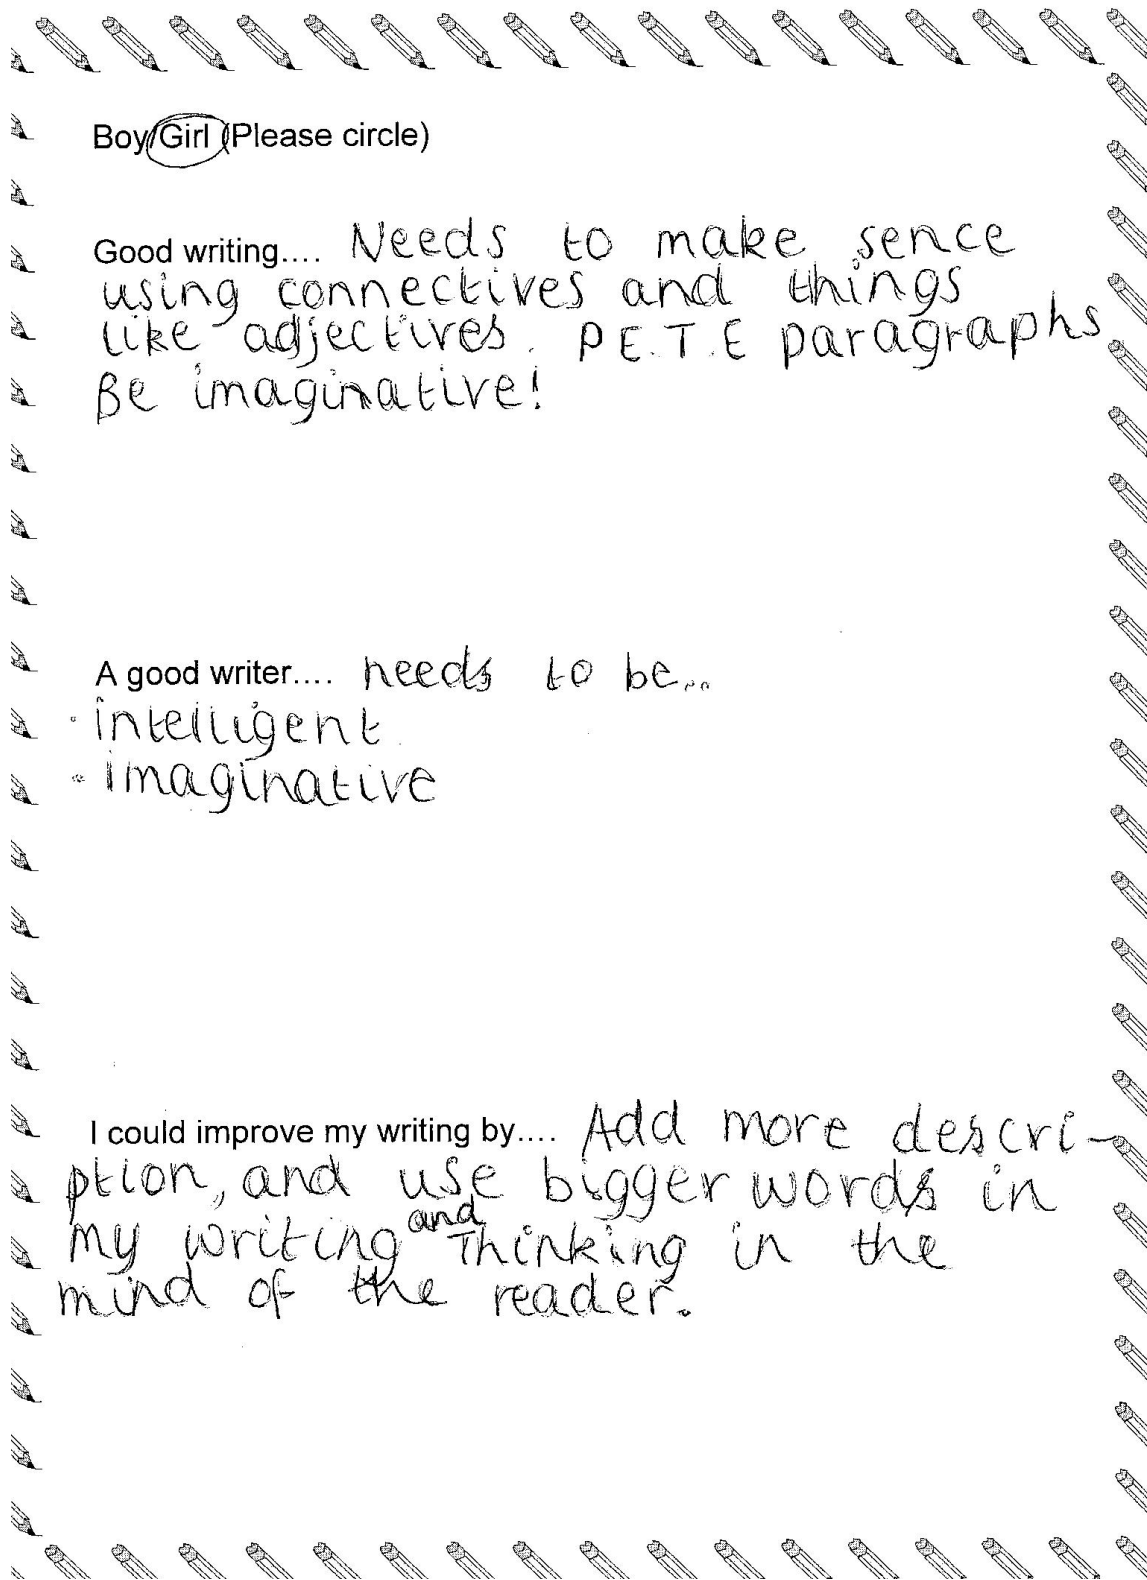 Boy/Girl (Please circle)
Good writing.... Needs to make sence
using connectives and things
like adjectives. P.E.T.E paragraphs
Be imaginative!
A good writer.... needs to be...
• intelligent
• imaginative
I could improve my writing by.... Add more descri-
ption, and use bigger words in
my writing and Thinking in the
mind of the reader.